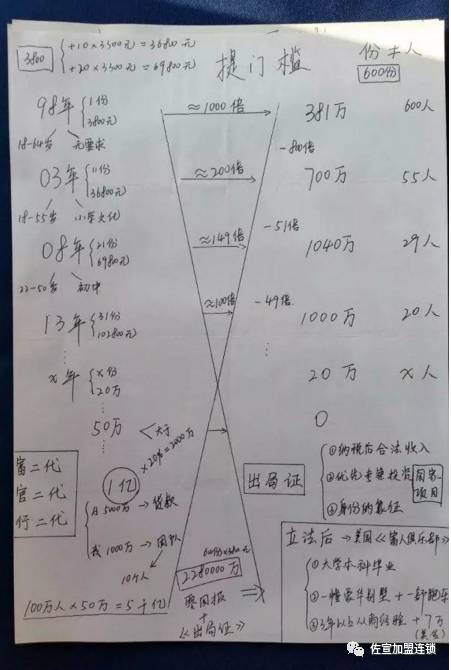 3800
+10×3300元=36800元
+20×3300元=69800元
提门槛
份 人
600份
98年 1份
3800元
≈1000倍
381万
600人
18-64岁 无要求
-800倍
03年 11份
36800元
≈200倍
700万
55人
18-55岁 小学文化
-51倍
08年 21份
69800元
≈149倍
1040万
29人
22-50岁 初中
≈100倍
-49倍
13年 31份
102800元
1000万
20人
x年 x份
20万
20万
x人
50万
大于
×20%=2000万
0
富二代
官二代
行二代
1亿
出局证
①纳税后合法收入
②优先重换投资 国家项目
③身份的象征
自5000万→贷款
我1000万→团队
10个人
600份×3800元
2280000万
零回报
+
《出局证》
100万人×50万=5千亿
立法后→美国《富人俱乐部》
①大学本科毕业
②一幢豪华别墅+一部跑车
③3年以上从商经验+7万
(美金)
佐宣加盟连锁